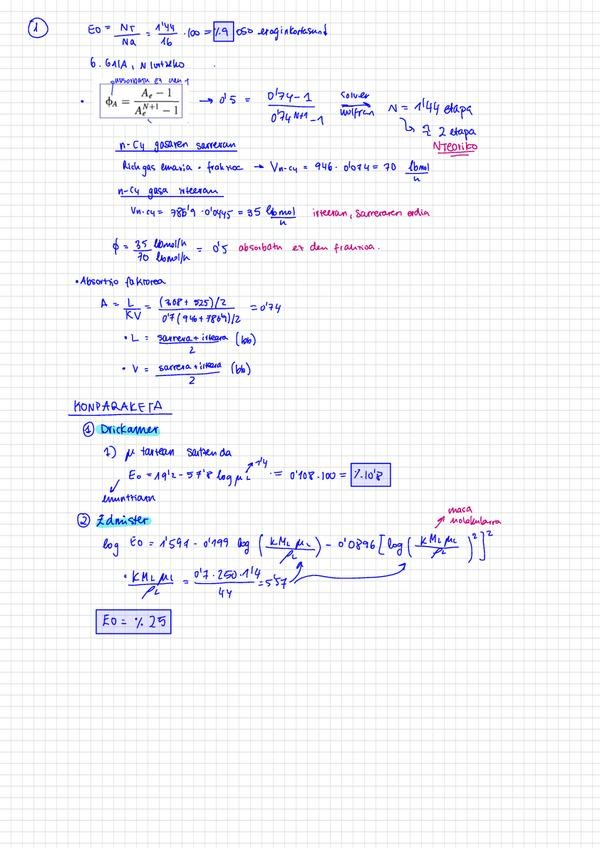 1
E0 = NT/Na = 1'44/16 · 100 = %9 oso eraginkortasun
6. GAIA, N lortzeko
absorbatu ez den
· ϕA = (Ae − 1)/(Ae^(N+1) − 1) → 0'5 = (0'74 − 1)/(0'74^(N+1) − 1) solver wolfram N = 1'44 etapa
↳ ≈ 2 etapa
N TEORIKO
n-C4 gasaren sarreran
Rich gas emaria · frakzioc → Vn-C4 = 946 · 0'074 = 70 lbmol/h
n-C4 gasa irteeran
Vn-C4 = 786'9 · 0'0445 = 35 lbmol/h irteeran, sarreraren erdia
ϕ = 35 lbmol/h / 70 lbmol/h = 0'5 absorbatu ez den frakzioa.
• Absortzio faktorea
A = L/KV = ((308 + 525)/2)/(0'7 (946 + 786'9)/2) = 0'74
• L = (sarrera + irteera)/2 (bb)
• V = (sarrera + irteera)/2 (bb)
KONPARAKETA
1 Drickamer
1) μ tartean sartzen da
E0 = 19'2 − 57'8 log μL 1'4 = 0'108 · 100 = %10'8
enuntziatu
2 Edmister
masa molekularra
log E0 = 1'597 − 0'199 log (K ML μL / ρL) − 0'0896 [log (K ML μL / ρL)²]²
• K ML μL / ρL = 0'7 · 250 · 1'4 / 44 = 5'57
E0 = % 25